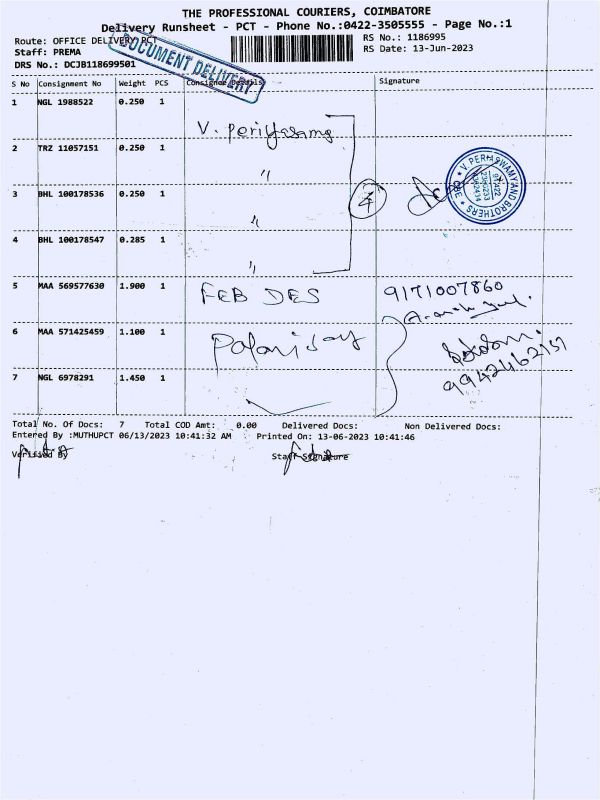 THE PROFESSIONAL COURIERS, COIMBATORE
Delivery Runsheet - PCT - Phone No.:0422-3505555 - Page No.:1
Route: OFFICE DELIVERY PCT
RS No.: 1186995
Staff: PREMA
RS Date: 13-Jun-2023
DRS No.: DCJB118699501
DOCUMENT DELIVERY
S No Consignment No Weight PCS Consignee Details Signature
1 NGL 1988522 0.250 1 V. Periyasamy
2 TRZ 11057151 0.250 1 "
3 BHL 100178536 0.250 1 " 4
4 BHL 100178547 0.285 1 "
5 MAA 569577630 1.900 1 FEB DES 9171007860
6 MAA 571425459 1.100 1
7 NGL 6978291 1.450 1 9942462151
Total No. Of Docs: 7 Total COD Amt: 0.00 Delivered Docs: Non Delivered Docs:
Entered By :MUTHUPCT 06/13/2023 10:41:32 AM Printed On: 13-06-2023 10:41:46
Verified By Staff Signature